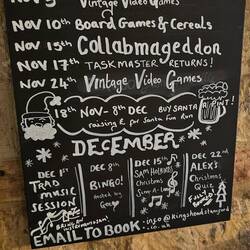 Nov 3rd Vintage Video Games
Nov 10th Board Games & Cereals
Nov 13th Collabmageddon
Nov 17th TASKMASTER RETURNS!
Nov 24th Vintage Video Games
18th Nov - 8th DEC BUY SANTA A PINT!
raising £ for Santa Fun Run
DECEMBER
DEC 1st
TRAD
MUSIC
SESSION
DEC 8th
BINGO!
hosted by
George
DEC 15th
SAM
Christmas
Sing-A-Long
DEC 22nd
ALEX'S
Christmas
Quiz
EMAIL TO BOOK - info@kingsheadstamford
.co.uk